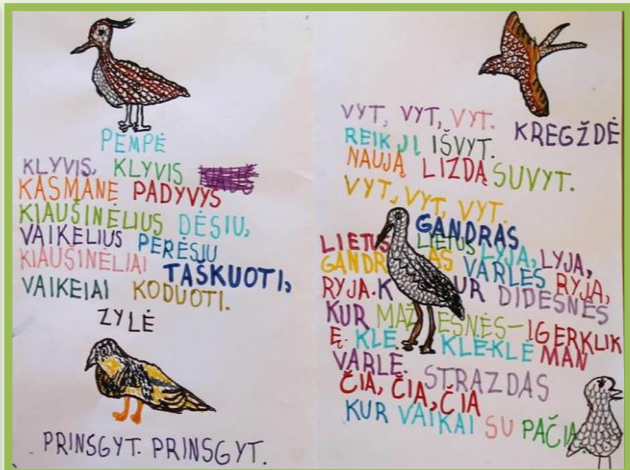 PEMPĖ
KLYVIS, KLYVIS
KASMANE PADYVYS
KIAUŠINĖLIUS DĖSIU,
VAIKELIUS PERĖSIU
KIAUŠINĖLIAI TAŠKUOTI,
VAIKEIAI KODUOTI.
ZYLĖ
PRINSGYT. PRINSGYT.
VYT, VYT, VYT. KREGŽDĖ
REIK JĮ IŠVYT.
NAUJĄ LIZDĄ SUVYT.
VYT, VYT, VYT.
GANDRAS
LIETUS LIETUS LYJA, LYJA,
GANDRAS VARLES RYJA,
RYJA. KUR DIDESNĖS
KUR MAŽESNĖS - IGERKLIK
Ę. KLE KLEKLĖ MAN
VARLĖ. STRAZDAS
ČIA, ČIA, ČIA
KUR VAIKAI SU PAČIA